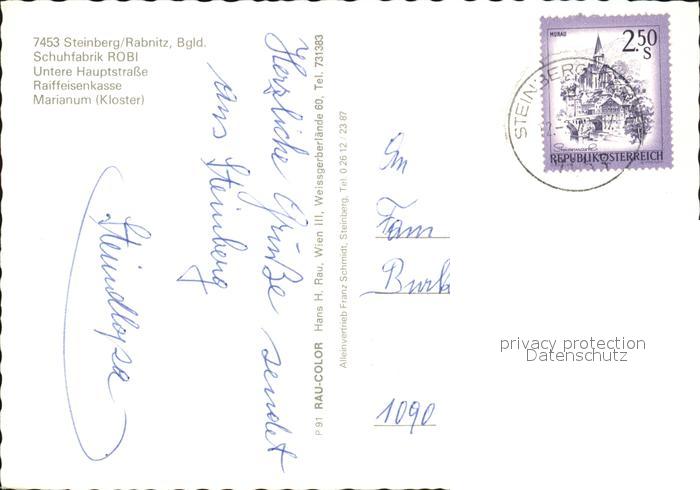 7453 Steinberg/Rabnitz, Bgld.
Schuhfabrik ROBI
Untere Hauptstraße
Raiffeisenkasse
Marianum (Kloster)
Herzliche Grüße sendet
aus Steinberg
P 91 RAU-COLOR Hans H. Rau, Wien III, Weissgerberlände 60, Tel. 731383
Alleinvertrieb Franz Schmidt, Steinberg, Tel. 0 26 12 / 23 87
MURAU
2.50
S
Steiermark
REPUBLIK ÖSTERREICH
STEINBERG
An
Fam
Burk
1090
privacy protection
Datenschutz